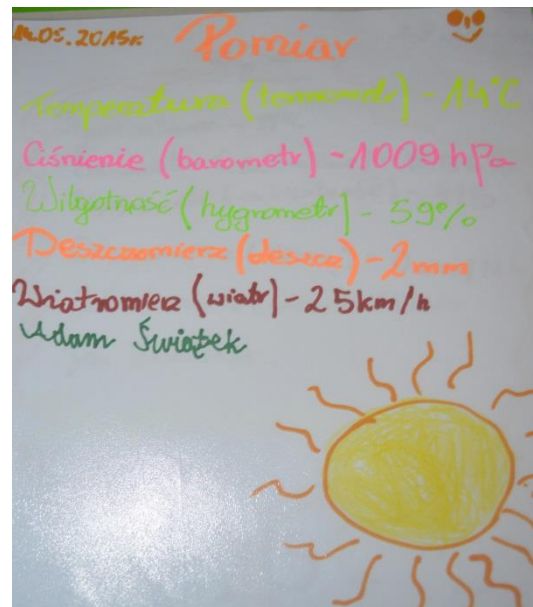 14.05.2015r. Pomiar
Temperatura (termometr) - 14°C
Ciśnienie (barometr) - 1009 hPa
Wilgotność (hygrometr) - 59%
Deszczomierz (deszcz) - 2mm
Wiatromierz (wiatr) - 25km/h
Adam Świątek